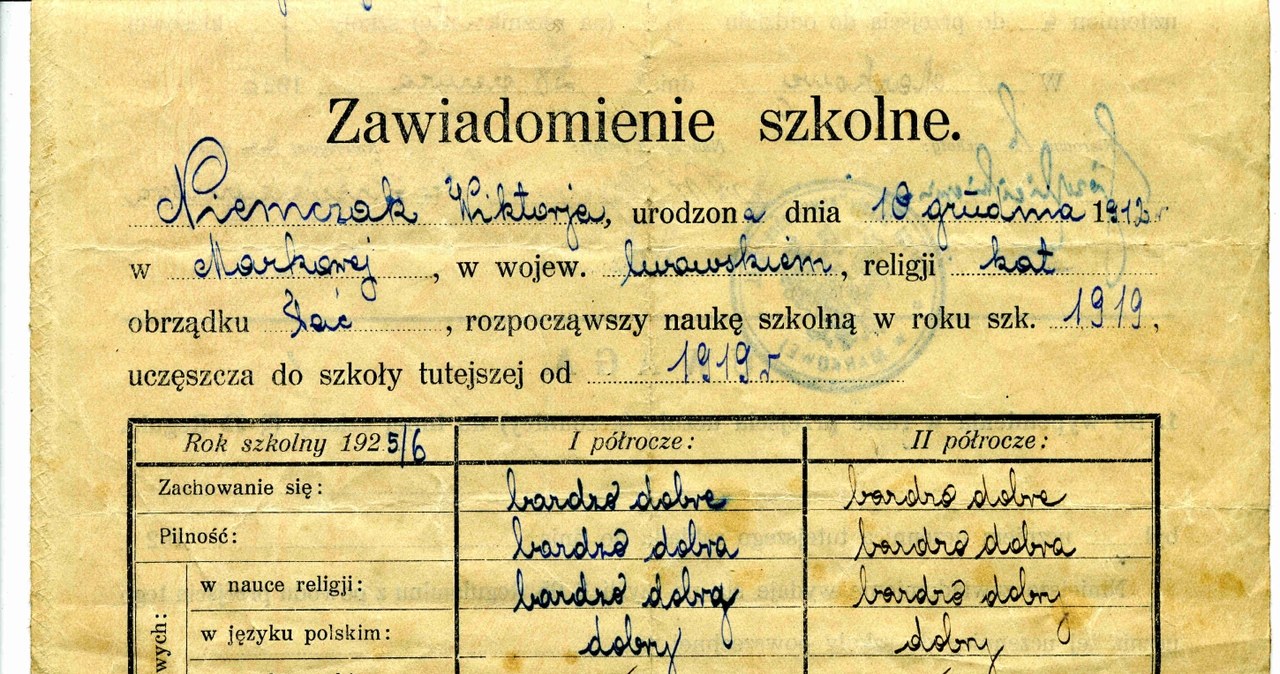 Zawiadomienie szkolne.
Niemczak Wiktorja, urodzona dnia 10 grudnia 1912r
w Markowej, w wojew. lwowskiém, religji kat
obrządku łać, rozpocząwszy naukę szkolną w roku szk. 1919,
uczęszcza do szkoły tutejszej od 1919r
Rok szkolny 1925/6 I półrocze: II półrocze:
Zachowanie się: bardzo dobre bardzo dobre
Pilność: bardzo dobra bardzo dobra
w nauce religji: bardzo dobry bardzo dobry
w języku polskim: dobry dobry
wych: